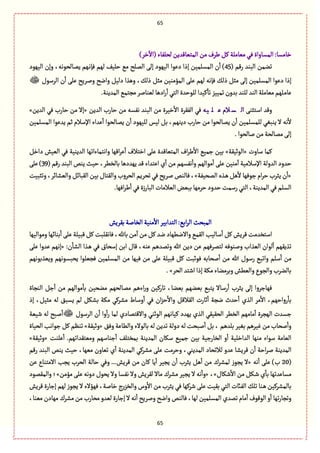 65
خامسا: المساواة في معاملة كل طرف من المتعاقدين لحلفاء (الآخر)
تضمن البند رقم (45) أن المسلمين إذا دعوا اليهود إلى الصلح مع حليف لهم فإنهم يصالحونه، وإن اليهود
إذا دعوا المسلمين إلى مثل ذلك فإنه لهم على المؤمنين مثل ذلك، وهذا دليل واضح وصريح على أن الرسول ﷺ
عاملهم معاملة الند للند بدون تمييز تأكيدا للوحدة التي أرادها لعناصر مجتمع المدينة.
وقد استثنى السلام عليه في الفقرة الأخيرة من البند نفسه من حارب الدين «إلا من حارب في الدين»
لأنه لا ينبغي للمسلمين أن يصالحوا من حارب دينهم، بل ليس لليهود أن يصالحوا أعداء الإسلام ثم يدعوا المسلمين
إلى مصالحة من صالحوا.
كما ساوت «الوثيقة» بين جميع الأطراف المتعاقدة على اختلاف أعراقها وانتماءاتها الدينية في العيش داخل
حدود الدولة الإسلامية آمنين على أموالهم وأنفسهم من أي اعتداء قد يهددها بالخطر، حيث ينص البند رقم (39) على
«أن يثرب حرام جوفها لأهل هذه الصحيفة»، فالنص صريح في تحريم الحروب والقتال بين القبائل والعشائر، وتثبيت
السلم في المدينة، التي رسمت حدود حرمها ببعض العلامات البارزة في أطرافها.
المبحث الرابع: التدابير الأمنية الخاصة بقريش
استخدمت قريش كل أساليب القمع والاضطهاد ضد كل من آمن بالله، فانقلبت كل قبيلة على أبنائها ومواليها
تذيقهم ألوان العذاب وصنوفه لتصرفهم عن دين الله وتصدهم عنه، قال ابن إسحاق في هذا الشأن: «إنهم عدوا على
من أسلم واتبع رسول الله من أصحابه فوثبت كل قبيلة على من فيها من المسلمين فجعلوا يحبسونهم ويعذبونهم
بالضرب والجوع والعطش وبرمضاء مكة إذا اشتد الحر».
فهاجروا إلى يثرب أرسالا يتبع بعضهم بعضا، تاركين وراءهم ممالحهم مضحين بأموالهم من أجل النجاة
بأرواحهم، الأمر الذي أحدث ضجة أثارت القلاقل والأحزان في أوساط مشركي مكة بشكل لم يسبق له مثيل، إذ
جسدت الهجرة أمامهم الخطر الحقيقي الذي يهدد كيانهم الوثني والاقتصادي لما رأوا أن الرسول ﷺ أصبح له شيعة
وأصحاب من غيرهم بغير بلدهم، بل أصبحت له دولة تدين له بالولاء والطاعة وفق «وثيقة» تنظم كل جوانب الحياة
العامة سواء منها الداخلية أو الخارجية بين جميع سكان المدينة بمختلف أجناسهم ومعتقداتهم. أعلنت «وثيقة»
المدينة صراحة أن قريشا عدو للاتحاد المديني، وحرمت على مشركي المدينة أي تعاون معها، حيث ينص البند رقم
(20 ب) على أنه «لا يجوز لمشرك من أهل يثرب أن يجير أيا كان من قريش... وفي حالة الحرب يجب الامتناع عن
مساعدتها بأي شكل من الأشكال»، «وأنه لا يجير مشرك مالا لقريش ولا نفسا ولا يحول دونه على مؤمن»؛ والمقصود
بالمشركين هنا تلك الفئات التي بقيت على شركها في يثرب من الأوس والخزرج خاصة، فهؤلاء لا يجوز لهم إجارة قريش
وتجارتها أو الوقوف أمام تصدي المسلمين لها، فالنص واضح وصريح أنه لا إجارة لعدو محارب من مشرك مهادن معنا،
65